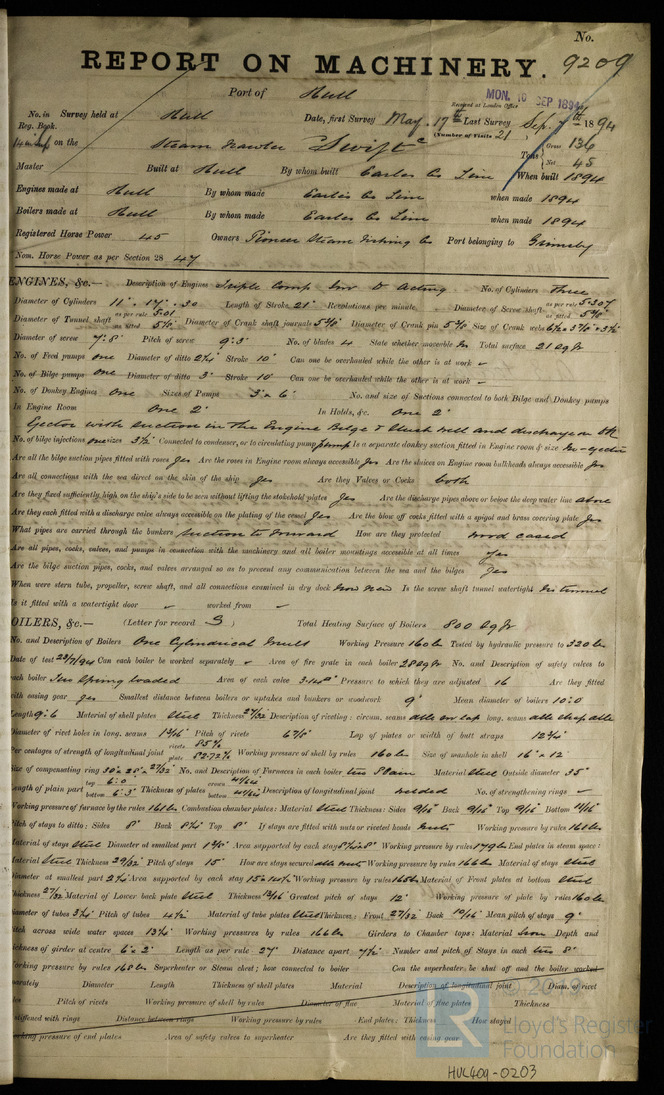 No.
REPORT ON MACHINERY. 9209
Port of Hull
MON. 10 SEP 1894
Received at London Office
No. in Survey held at Hull Date, first Survey May. 17th Last Survey Sep. 7th 1894
Reg. Book. (Number of Visits 21)
on the Steam Trawler "Swift" Tons Gross 136 Net 45
Master Built at Hull By whom built Earles Co Lim When built 1894
Engines made at Hull By whom made Earles Co Lim when made 1894
Boilers made at Hull By whom made Earles Co Lim when made 1894
Registered Horse Power 45 Owners Pioneer Steam Fishing Co Port belonging to Grimsby
Nom. Horse Power as per Section 28 47
ENGINES, &c.— Description of Engines Triple Comp Inv D Acting No. of Cylinders Three
Diameter of Cylinders 11". 17". 30 Length of Stroke 21" Revolutions per minute Diameter of Screw shaft as per rule 5.307 as fitted
Diameter of Tunnel shaft as per rule 5.01 as fitted Diameter of Crank shaft journals Diameter of Crank pin Size of Crank webs
Diameter of screw 7'.8" Pitch of screw 9'.3" No. of blades 4 State whether moveable No Total surface 21 sq ft
No. of Feed pumps one Diameter of ditto Stroke 10" Can one be overhauled while the other is at work
No. of Bilge pumps one Diameter of ditto 3" Stroke 10" Can one be overhauled while the other is at work
No. of Donkey Engines One Sizes of Pumps 3" x 6" No. and size of Suctions connected to both Bilge and Donkey pumps
In Engine Room One 2" In Holds, &c. One 2"
Ejector with suction in the Engine Bilge & well and discharge on
No. of bilge injections one sizes 3½" Connected to condenser, or to circulating pump pump Is a separate donkey suction fitted in Engine room & size
Are all the bilge suction pipes fitted with roses Yes Are the roses in Engine room always accessible Yes Are the sluices on Engine room bulkheads always accessible Yes
Are all connections with the sea direct on the skin of the ship Yes Are they Valves or Cocks both
Are they fixed sufficiently high on the ship's side to be seen without lifting the stokehold plates Yes Are the discharge pipes above or below the deep water line above
Are they each fitted with a discharge valve always accessible on the plating of the vessel Yes Are the blow off cocks fitted with a spigot and brass covering plate Yes
What pipes are carried through the bunkers Suction to forward How are they protected wood cased
Are all pipes, cocks, valves, and pumps in connection with the machinery and all boiler mountings accessible at all times Yes
Are the bilge suction pipes, cocks, and valves arranged so as to prevent any communication between the sea and the bilges Yes
When were stern tube, propeller, screw shaft, and all connections examined in dry dock Is the screw shaft tunnel watertight No tunnel
Is it fitted with a watertight door worked from
BOILERS, &c.— (Letter for record S) Total Heating Surface of Boilers 800 sq ft
No. and Description of Boilers One Cylindrical Working Pressure 160 lbs Tested by hydraulic pressure to 320 lbs
Date of test Can each boiler be worked separately Area of fire grate in each boiler 28 sq ft No. and Description of safety valves to
each boiler Two Spring loaded Area of each valve 3.14 Pressure to which they are adjusted Are they fitted
with easing gear Yes Smallest distance between boilers or uptakes and bunkers or woodwork 9" Mean diameter of boilers 10'.0
Length 9'.6 Material of shell plates Steel Thickness 27/32 Description of riveting: circum. seams long. seams
Diameter of rivet holes in long. seams Pitch of rivets Lap of plates or width of butt straps
Per centages of strength of longitudinal joint rivets 85% plate 82.72% Working pressure of shell by rules 160 lbs Size of manhole in shell 16" x 12
Size of compensating ring No. and Description of Furnaces in each boiler two Plain Material Steel Outside diameter 35"
Length of plain part top 6'.0" bottom 6'.3" Thickness of plates crown bottom Description of longitudinal joint welded No. of strengthening rings
Working pressure of furnace by the rules 161 lbs Combustion chamber plates: Material Steel Thickness: Sides 9/16" Back 9/16" Top 9/16" Bottom 11/16"
Pitch of stays to ditto: Sides 8" Back Top 8" If stays are fitted with nuts or riveted heads Nuts Working pressure by rules
Material of stays Steel Diameter at smallest part Area supported by each stay Working pressure by rules End plates in steam space:
Material Steel Thickness 29/32 Pitch of stays 15" How are stays secured Working pressure by rules 166 lbs Material of stays Steel
Diameter at smallest part Area supported by each stay Working pressure by rules 165 lbs Material of Front plates at bottom Steel
Thickness 27/32 Material of Lower back plate Steel Thickness Greatest pitch of stays 12" Working pressure of plate by rules 160 lbs
Diameter of tubes 3¼ Pitch of tubes 4½ Material of tube plates Steel Thickness: Front 27/32 Back Mean pitch of stays 9"
Pitch across wide water spaces Working pressures by rules 166 lbs Girders to Chamber tops: Material Iron Depth and
thickness of girder at centre 6" x 2" Length as per rule 27" Distance apart Number and pitch of Stays in each two 8"
Working pressure by rules 168 lbs Superheater or Steam chest; how connected to boiler Can the superheater be shut off and the boiler worked
separately Diameter Length Thickness of shell plates Material Description of longitudinal joint Diam. of rivet
holes Pitch of rivets Working pressure of shell by rules Diameter of flue Material of flue plates Thickness
If stiffened with rings Distance between rings Working pressure by rules End plates: Thickness How stayed
Working pressure of end plates Area of safety valves to superheater Are they fitted with easing gear
© 2019
Lloyd's Register
Foundation
HUL409-0203